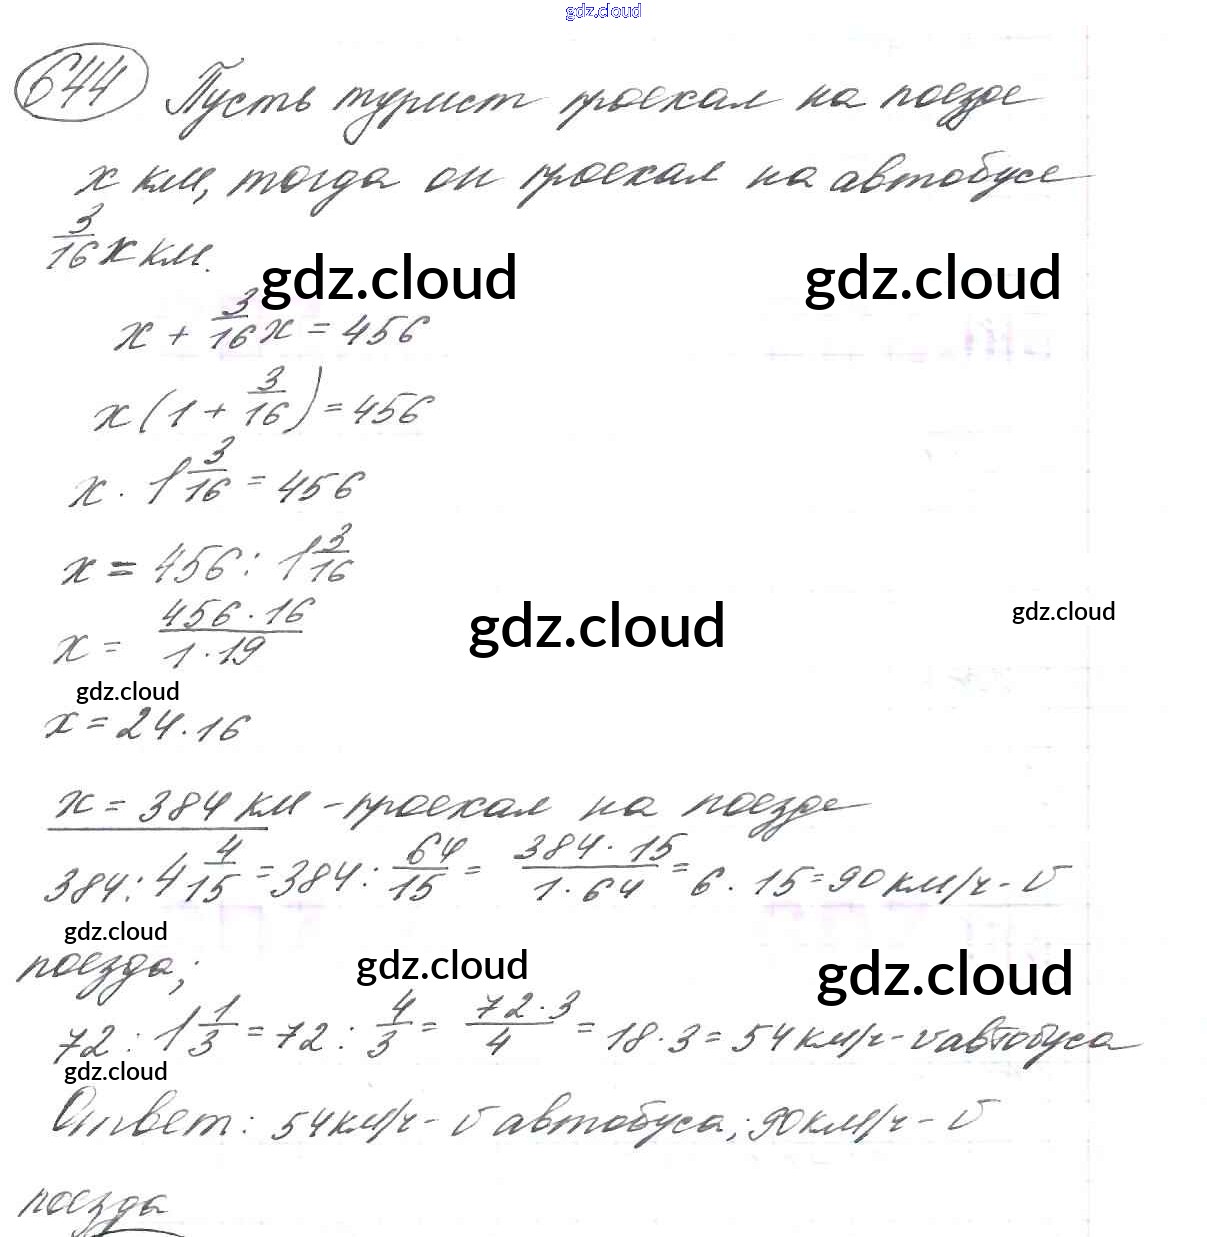 gdz.cloud
644 Пусть турист проехал на поезде
x км, тогда он проехал на автобусе
3/16 x км.
gdz.cloud gdz.cloud
x + 3/16 x = 456
x(1 + 3/16) = 456
x · 1 3/16 = 456
x = 456 : 1 3/16
x = 456 · 16 / 1 · 19
gdz.cloud gdz.cloud
gdz.cloud
x = 24 · 16
x = 384 км - проехал на поезде
384 : 4 4/15 = 384 : 64/15 = 384 · 15 / 1 · 64 = 6 · 15 = 90 км/ч - v
gdz.cloud
поезда;
gdz.cloud gdz.cloud
72 : 1 1/3 = 72 : 4/3 = 72 · 3 / 4 = 18 · 3 = 54 км/ч - v автобуса
gdz.cloud
Ответ: 54 км/ч - v автобуса; 90 км/ч - v
поезда